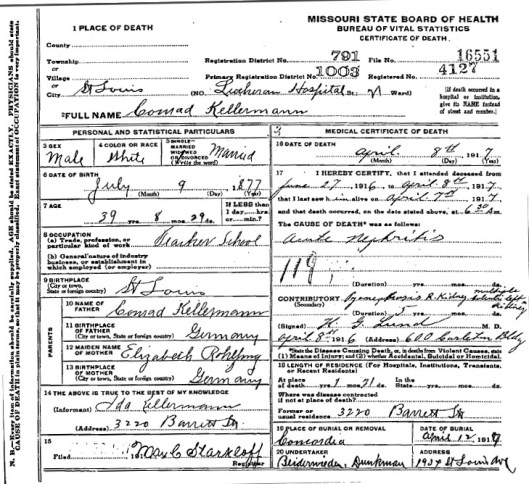 MISSOURI STATE BOARD OF HEALTH
BUREAU OF VITAL STATISTICS
CERTIFICATE OF DEATH
1 PLACE OF DEATH
County
Township
or
Village
or
City St Louis
Registration District No. 791 File No. 16551
Primary Registration District No. 1003 Registered No. 4127
(NO. Lutheran Hospital St.; Ward)
[If death occurred in a hospital or institution, give its NAME instead of street and number.]
2 FULL NAME Conrad Kellermann
PERSONAL AND STATISTICAL PARTICULARS
3 SEX
Male
4 COLOR OR RACE
White
5 SINGLE MARRIED WIDOWED OR DIVORCED (Write the word)
Married
6 DATE OF BIRTH
July 9 1877
(Month) (Day) (Year)
7 AGE
39 yrs. 8 mos. 29 ds.
If LESS than 1 day,....hrs. or....min.?
8 OCCUPATION
(a) Trade, profession, or particular kind of work Teacher School
(b) General nature of industry business, or establishment in which employed (or employer)
9 BIRTHPLACE
(City or town, State or foreign country) St Louis
PARENTS
10 NAME OF FATHER Conrad Kellermann
11 BIRTHPLACE OF FATHER
(City or town, State or foreign country) Germany
12 MAIDEN NAME OF MOTHER Elizabeth
13 BIRTHPLACE OF MOTHER
(City or town, State or foreign country) Germany
14 THE ABOVE IS TRUE TO THE BEST OF MY KNOWLEDGE
(Informant) Ida Kellermann
(Address) 3220 Barrett St
15
Filed 191 Max C Starkloff
Registrar
MEDICAL CERTIFICATE OF DEATH
16 DATE OF DEATH
April 8th 1917
(Month) (Day) (Year)
17 I HEREBY CERTIFY, that I attended deceased from
June 27, 1916, to April 8th 1917,
that I last saw him alive on April 7th 1917
and that death occurred, on the date stated above, at 6 30 m.
The CAUSE OF DEATH was as follows:
Acute Nephritis
118
(Duration) yrs. mos. ds.
CONTRIBUTORY
(Secondary)
(Duration) 3 yrs. mos. ds.
(Signed) H. Lund M. D.
April 8th 1916 (Address) 600 Carleton Bldg
*State the Disease Causing Death, or, in deaths from Violent Causes, state (1) Means of Injury; and (2) whether Accidental, Suicidal or Homicidal.
18 LENGTH OF RESIDENCE (For Hospitals, Institutions, Transients, or Recent Residents)
At place of death yrs. 1 mos. 21 ds. In the State yrs. mos. ds.
Where was disease contracted if not at place of death?
Former or usual residence 3220 Barrett St
19 PLACE OF BURIAL OR REMOVAL
Concordia
DATE OF BURIAL
April 12 1917
20 UNDERTAKER
Beiderwieden, Dunkman
ADDRESS
1934 St Louis Ave
N. B.—Every item of information should be carefully supplied. AGE should be stated EXACTLY. PHYSICIANS should state CAUSE OF DEATH in plain terms, so that it may be properly classified. Exact statement of OCCUPATION is very important.